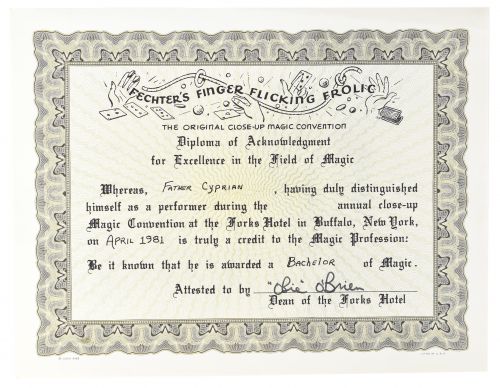 FECHTER'S FINGER FLICKING FROLIC
THE ORIGINAL CLOSE-UP MAGIC CONVENTION
Diploma of Acknowledgment
for Excellence in the Field of Magic
Whereas, FATHER CYPRIAN, having duly distinguished
himself as a performer during the annual close-up
Magic Convention at the Forks Hotel in Buffalo, New York,
on APRIL 1981 is truly a credit to the Magic Profession:
Be it known that he is awarded a BACHELOR of Magic.
Attested to by "Obie" O'Brien
Dean of the Forks Hotel